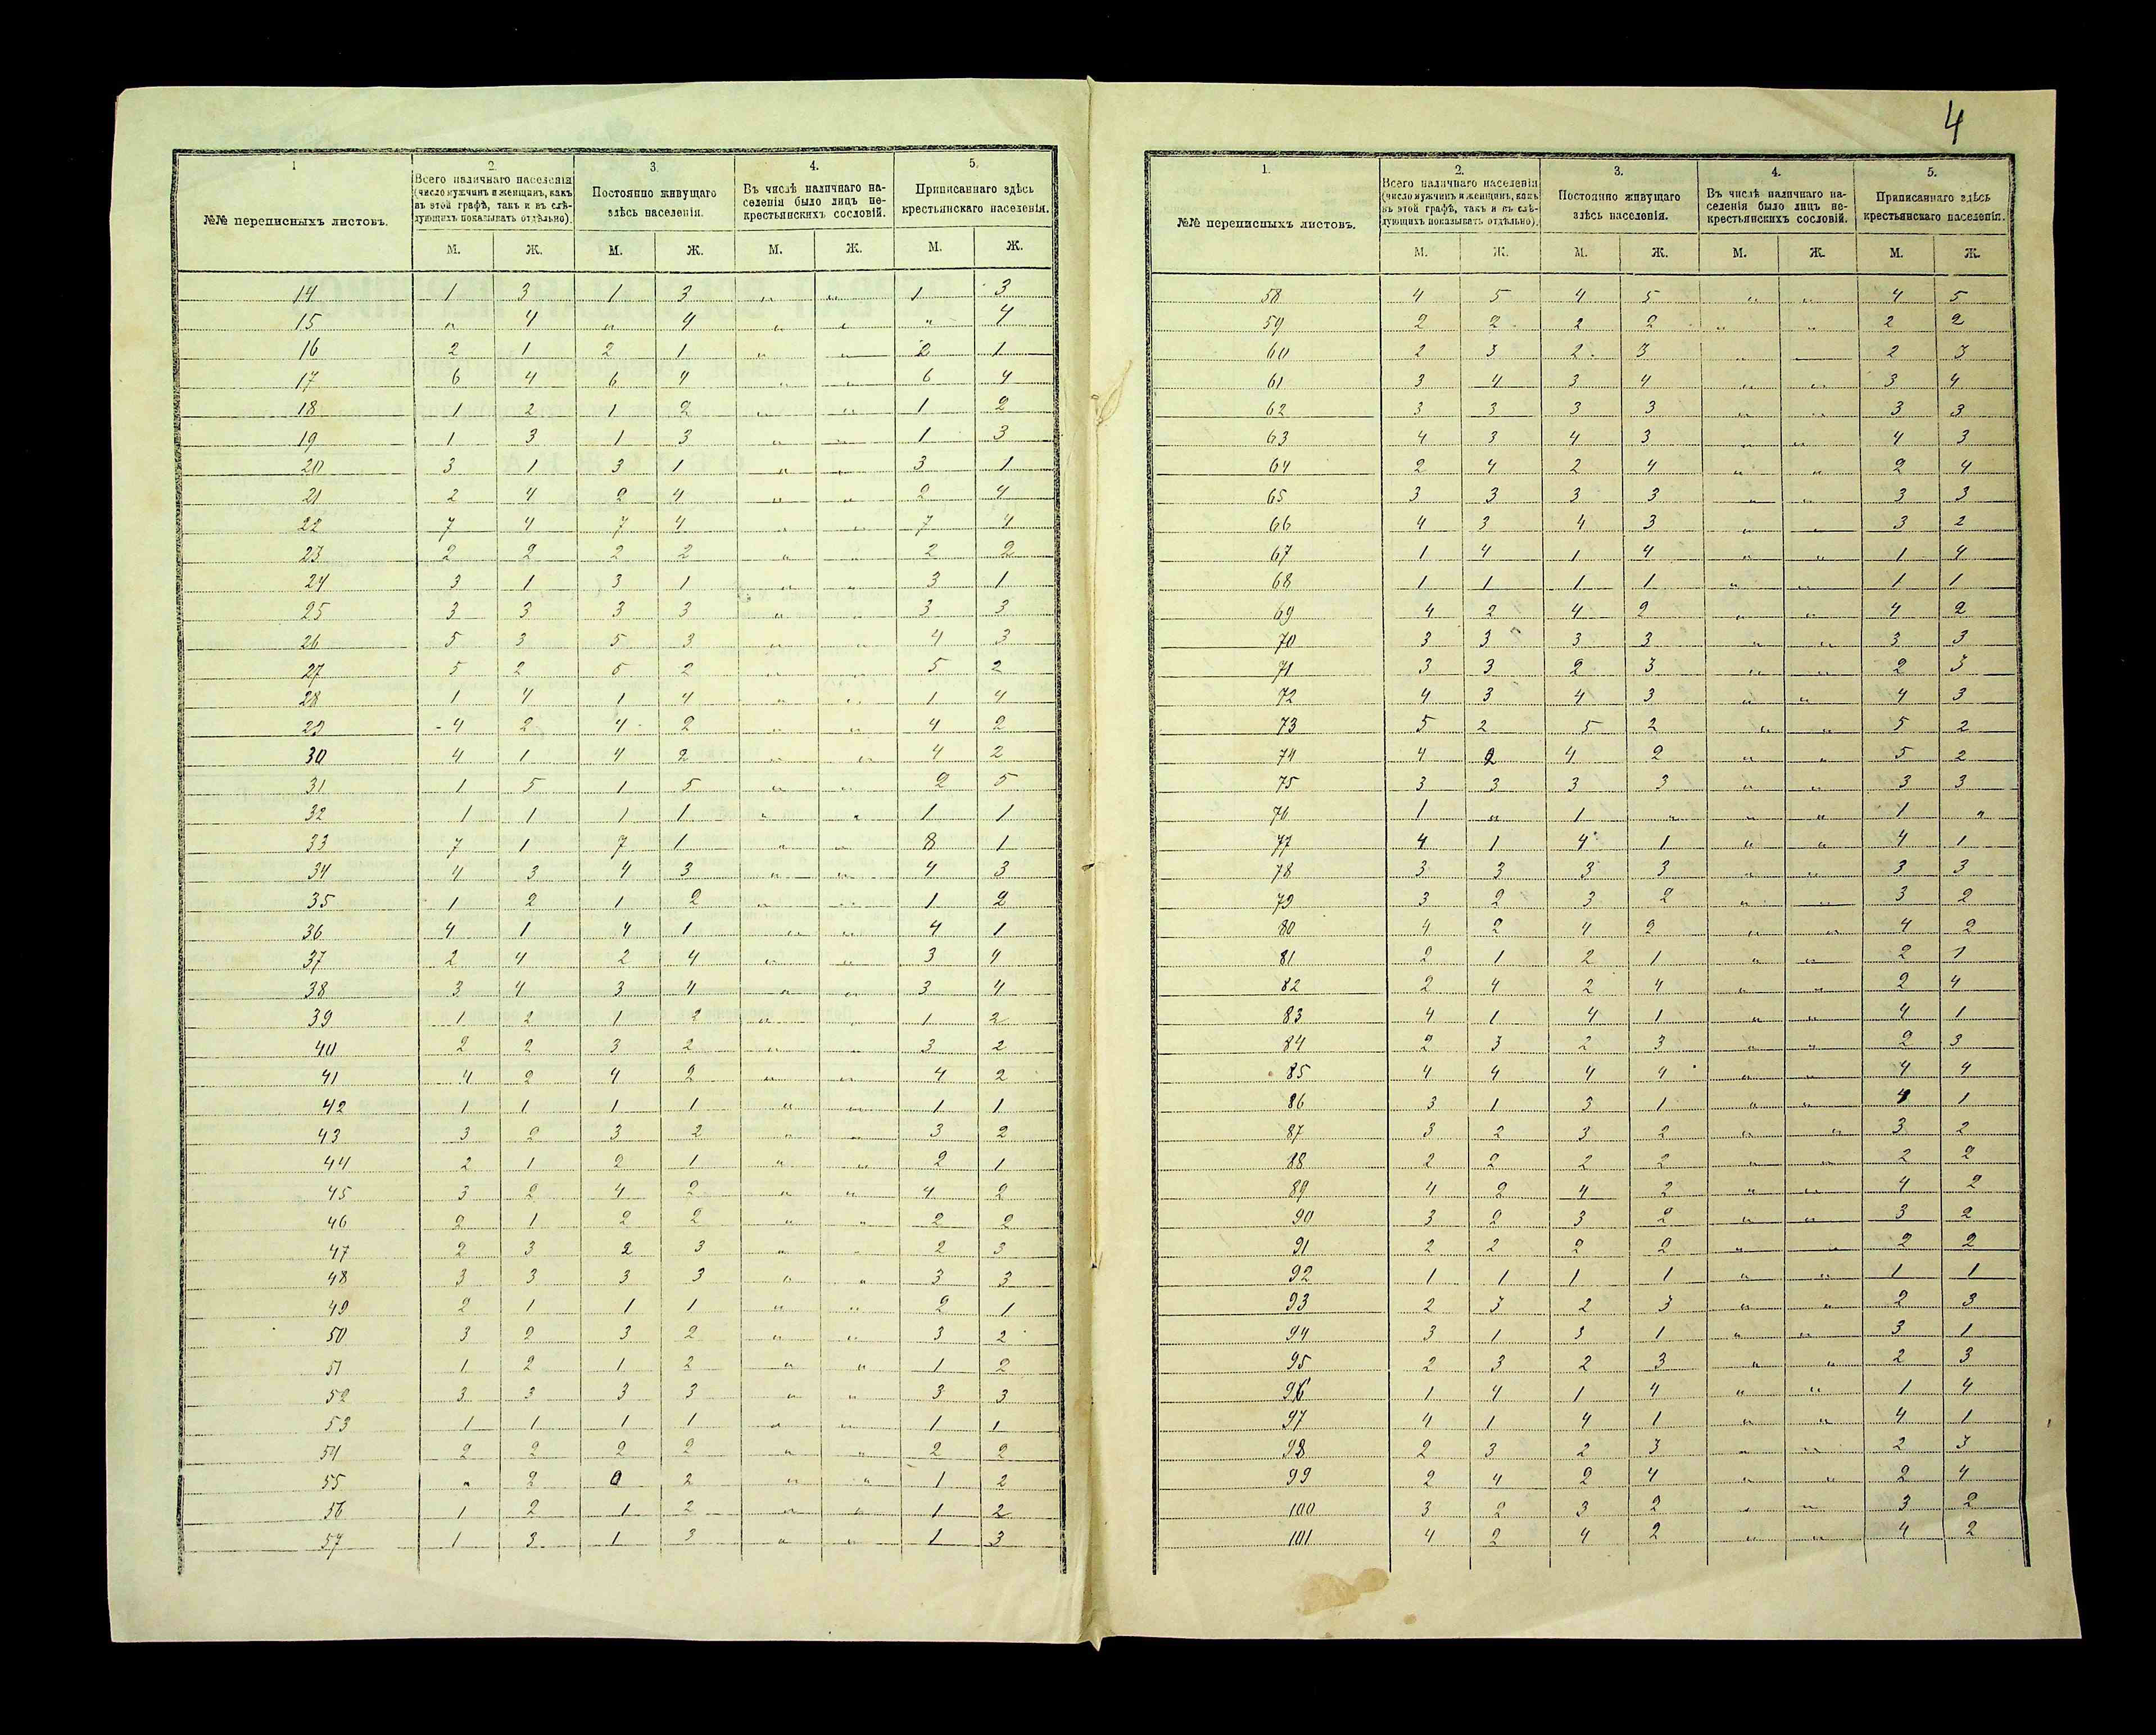 1
2.
3.
4.
5.
№№ переписныхъ листовъ.
Всего наличнаго населенія (число мужчинъ и женщинъ, какъ въ этой графѣ, такъ и въ слѣдующихъ показывать отдѣльно).
Постоянно живущаго здѣсь населенія.
Въ числѣ наличнаго населенія было лицъ некрестьянскихъ сословій.
Приписаннаго здѣсь крестьянскаго населенія.
М. Ж. М. Ж. М. Ж. М. Ж.
14 1 3 1 3 „ „ 1 3
15 „ 4 „ 4 „ „ „ 4
16 2 1 2 1 „ „ 2 1
17 6 4 6 4 „ „ 6 4
18 1 2 1 2 „ „ 1 2
19 1 3 1 3 „ „ 1 3
20 3 1 3 1 „ „ 3 1
21 2 4 2 4 „ „ 2 4
22 7 4 7 4 „ „ 7 4
23 2 2 2 2 „ „ 2 2
24 3 1 3 1 „ „ 3 1
25 3 3 3 3 „ „ 3 3
26 5 3 5 3 „ „ 4 3
27 5 2 5 2 „ „ 5 2
28 1 4 1 4 „ „ 1 4
29 4 2 4 2 „ „ 4 2
30 4 1 4 2 „ „ 4 2
31 1 5 1 5 „ „ 2 5
32 1 1 1 1 „ „ 1 1
33 7 1 7 1 „ „ 8 1
34 4 3 4 3 „ „ 4 3
35 1 2 1 2 „ „ 1 2
36 4 1 4 1 „ „ 4 1
37 2 4 2 4 „ „ 3 4
38 3 4 3 4 „ „ 3 4
39 1 2 1 2 „ „ 1 2
40 2 2 3 2 „ „ 3 2
41 4 2 4 2 „ „ 4 2
42 1 1 1 1 „ „ 1 1
43 3 2 3 2 „ „ 3 2
44 2 1 2 1 „ „ 2 1
45 3 2 4 2 „ „ 4 2
46 2 1 2 2 „ „ 2 2
47 2 3 2 3 „ „ 2 3
48 3 3 3 3 „ „ 3 3
49 2 1 1 1 „ „ 2 1
50 3 2 3 2 „ „ 3 2
51 1 2 1 2 „ „ 1 2
52 3 3 3 3 „ „ 3 3
53 1 1 1 1 „ „ 1 1
54 2 2 2 2 „ „ 2 2
55 „ 2 0 2 „ „ 1 2
56 1 2 1 2 „ „ 1 2
57 1 3 1 3 „ „ 1 3
4
1.
2.
3.
4.
5.
№№ переписныхъ листовъ.
Всего наличнаго населенія (число мужчинъ и женщинъ, какъ въ этой графѣ, такъ и въ слѣдующихъ показывать отдѣльно).
Постоянно живущаго здѣсь населенія.
Въ числѣ наличнаго населенія было лицъ некрестьянскихъ сословій.
Приписаннаго здѣсь крестьянскаго населенія.
М. Ж. М. Ж. М. Ж. М. Ж.
58 4 5 4 5 „ „ 4 5
59 2 2 2 2 „ „ 2 2
60 2 3 2 3 „ „ 2 3
61 3 4 3 4 „ „ 3 4
62 3 3 3 3 „ „ 3 3
63 4 3 4 3 „ „ 4 3
64 2 4 2 4 „ „ 2 4
65 3 3 3 3 „ „ 3 3
66 4 3 4 3 „ „ 3 2
67 1 4 1 4 „ „ 1 4
68 1 1 1 1 „ „ 1 1
69 4 2 4 2 „ „ 4 2
70 3 3 3 3 „ „ 3 3
71 3 3 2 3 „ „ 2 3
72 4 3 4 3 „ „ 4 3
73 5 2 5 2 „ „ 5 2
74 4 2 4 2 „ „ 5 2
75 3 3 3 3 „ „ 3 3
76 1 „ 1 „ „ „ 1 „
77 4 1 4 1 „ „ 4 1
78 3 3 3 3 „ „ 3 3
79 3 2 3 2 „ „ 3 2
80 4 2 4 2 „ „ 4 2
81 2 1 2 1 „ „ 2 1
82 2 4 2 4 „ „ 2 4
83 4 1 4 1 „ „ 4 1
84 2 3 2 3 „ „ 2 3
85 4 4 4 4 „ „ 4 4
86 3 1 3 1 „ „ 4 1
87 3 2 3 2 „ „ 3 2
88 2 2 2 2 „ „ 2 2
89 4 2 4 2 „ „ 4 2
90 3 2 3 2 „ „ 3 2
91 2 2 2 2 „ „ 2 2
92 1 1 1 1 „ „ 1 1
93 2 3 2 3 „ „ 2 3
94 3 1 3 1 „ „ 3 1
95 2 3 2 3 „ „ 2 3
96 1 4 1 4 „ „ 1 4
97 4 1 4 1 „ „ 4 1
98 2 3 2 3 „ „ 2 3
99 2 4 2 4 „ „ 2 4
100 3 2 3 2 „ „ 3 2
101 4 2 4 2 „ „ 4 2